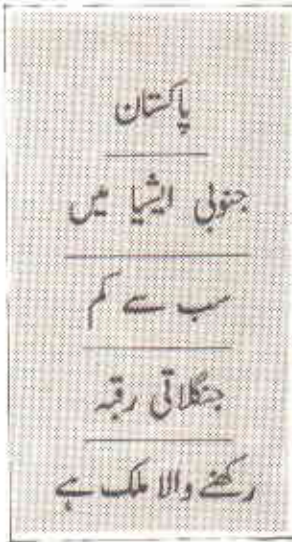 پاکستان
جنوبی ایشیا میں
سب سے کم
جنگلاتی رقبہ
رکھنے والا ملک ہے